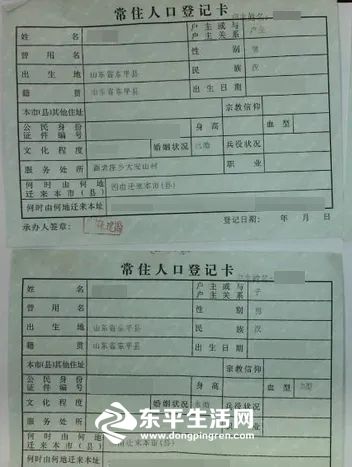 常住人口登记卡
户主姓名:
姓 名 户主或与户主关系 户主
曾用名 性 别 男
出 生 地 山东省东平县 民 族 汉
籍 贯 山东省东平县 出生日期
本市(县)其他住址 宗教信仰
公民身份证件编号 身 高 血型
文化程度 婚姻状况 已婚 兵役状况
服务处所 职 业
何时由何地迁来本市(县) 迁来本市(县)
何时由何地迁来本址
承办人签章: 登记日期: 年 月 日
常住人口登记卡
户主姓名:
姓 名 户主或与户主关系 子
曾用名 性 别 男
出 生 地 山东省东平县 民 族 汉
籍 贯 山东省东平县 出生日期
本市(县)其他住址 宗教信仰
公民身份证件编号 身 高 血型
文化程度 婚姻状况 兵役状况
服务处所
何时由何地迁来本市(县) 迁来本市(县)
何时由何地迁来本址
东平生活网
www.dongpingren.com